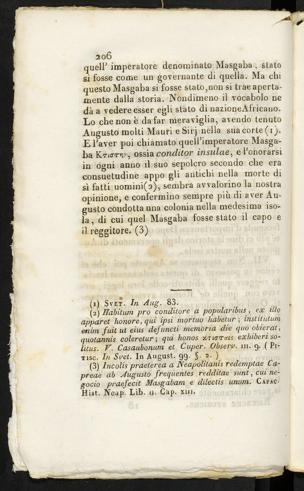 206
quell' imperatore denominato Masgaba, stato
si fosse come un governante di quella. Ma chi
questo Masgaba si fosse stato, non si trae aperta-
mente dalla storia. Nondimeno il vocabolo ne
dà a vedere esser egli stato di nazione Africano.
Lo che non è da far meraviglia, avendo tenuto
Augusto molti Mauri e Sirj nella sua corte (1).
E l'aver poi chiamato quell'imperatore Masga-
ba Κτιστην, ossia conditor insulae, e l'onorarsi
in ogni anno il suo sepolcro secondo che era
consuetudine appo gli antichi nella morte di
sì fatti uomini (2), sembra avvalorino la nostra
opinione, e confermino sempre più di aver Au-
gusto condotta una colonia nella medesima iso-
la, di cui quel Masgaba fosse stato il capo e
il reggitore. (3)
(1) SVET. In Aug. 83.
(2) Habitum pro conditore a popularibus, ex illo
apparet honore, qui ipsi mortuo habetur; institutum
enim fuit ut eius defuncti memoria die quo obierat,
quotannis coleretur; qui honos κτιστσις exhiberi so-
litus. V. Casaubonum et Cuper. Observ. III. 9. (PI-
TISC. In Svet. In August. 99. §. 2.)
(3) Incolis praeterea a Neapolitanis redemptae Ca-
preae ab Augusto frequentes redditae sunt, cui ne-
gocio praefecit Masgabam e dilectis unum. CAPAC.
Hist. Neap. Lib. II. Cap. XIII.